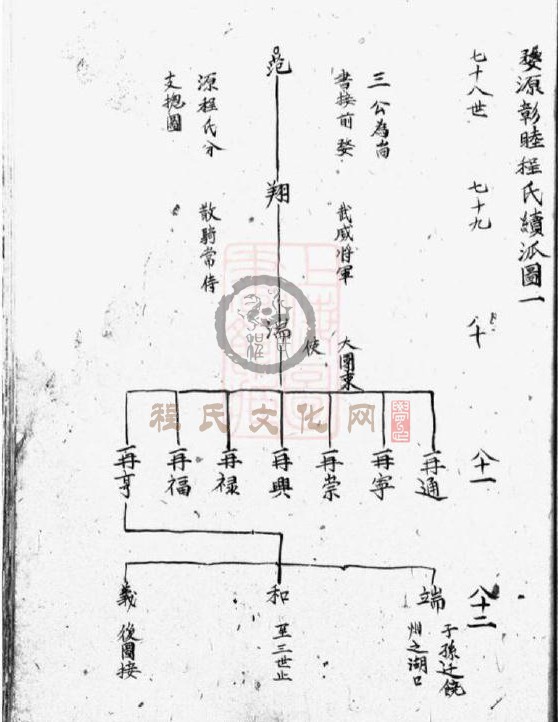 婺源彰睦程氏續派圖一
七十八世
七十九
八十
八十一
八十二
范
三公為尚
書接前婺
源程氏分
支總圖
翔
武威將軍
散騎常侍
湍
大團束
使
再通
再寧
再崇
再興
再祿
再福
再亨
端
子孫迁饒
州之湖口
和
至三世止
義
後圖接
程氏文化网